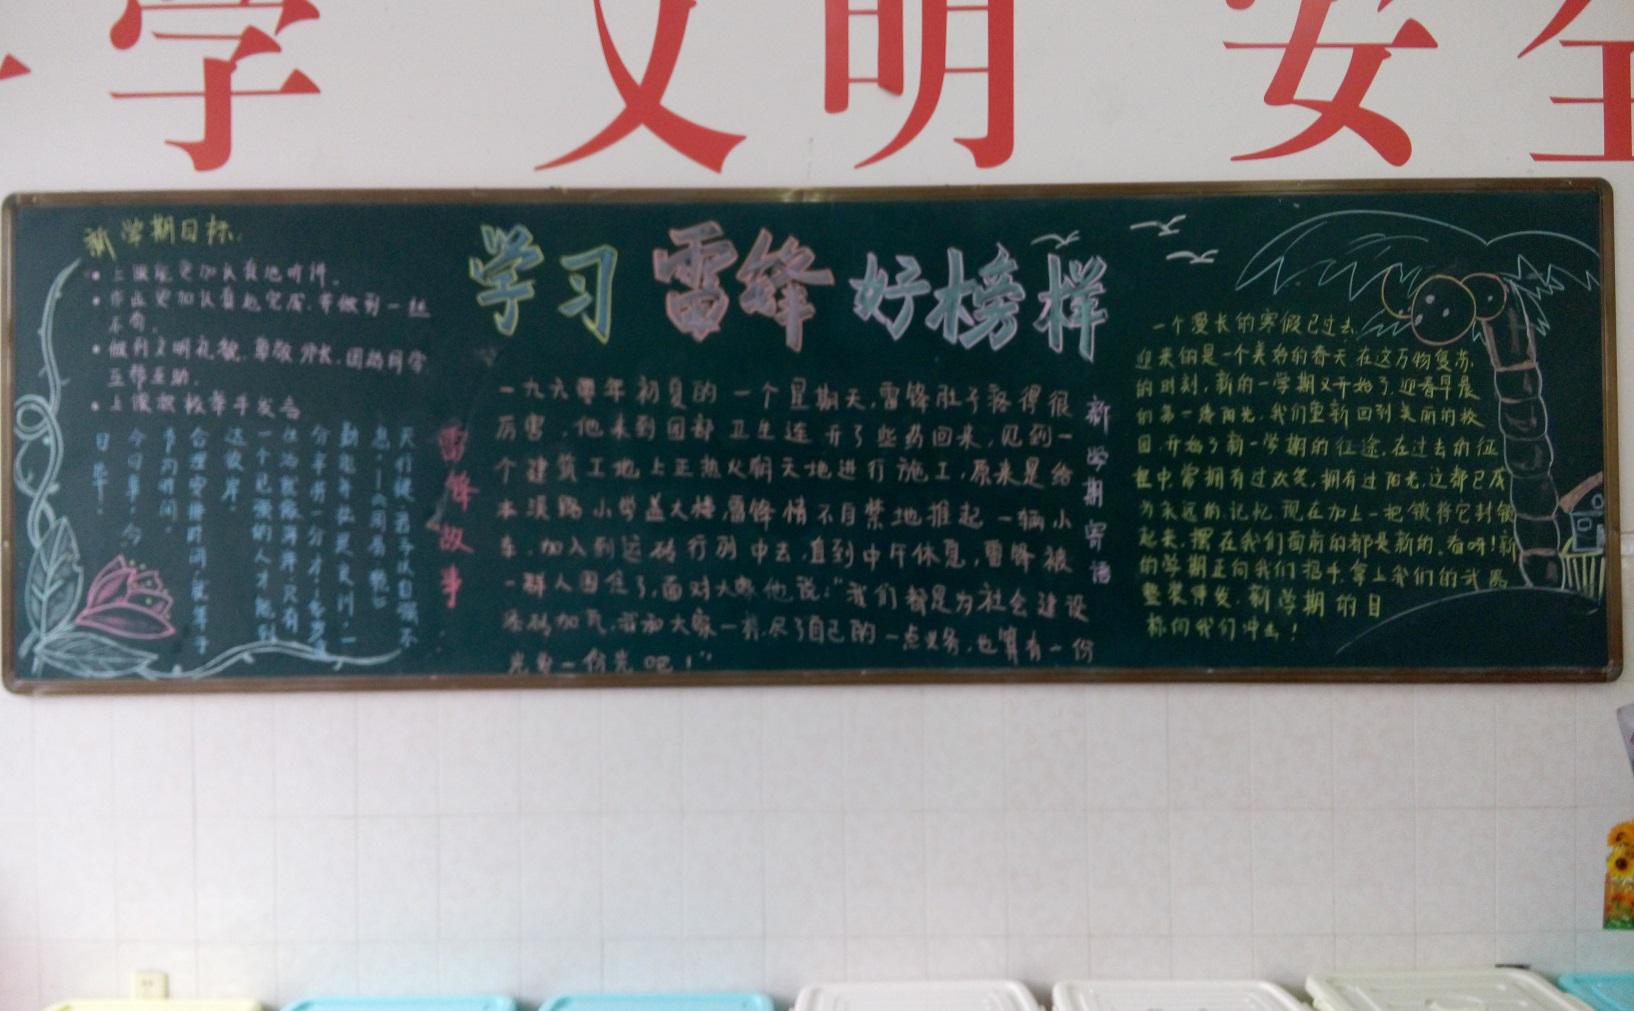 学 文明 安全
新学期目标.
• 上课能更加认真地听讲.
• 作业更加认真地完成.带做到一丝
不苟.
• 做到文明礼貌.尊敬师长.团结同学
互帮互助.
• 上课积极举手发言
天行健,君子以自强不
息!—《周易·乾》
勤能补拙是良训,一
分辛劳一分才!
一个
合理安排时间,就等于
节约时间.
今日事,今
日毕!
雷锋故事
学习雷锋好榜样
一九六零年初夏的一个星期天,雷锋肚子疼得很
厉害,他来到团部卫生连开了些药回来,见到一
个建筑工地上正热火朝天地进行施工,原来是给
本溪路小学盖大楼,雷锋情不自禁地推起一辆小
车,加入到运砖行列中去,直到中午休息,雷锋被
一群人围住了,面对大家他说:“我们都是为社会建设
添砖加瓦,我和大家一样,尽了自己的一点义务,也算有一份
光发一份光吧!”
新学期寄语
一个漫长的寒假已过去,
迎来的是一个美好的春天在这万物复苏
的时刻,新的一学期又开始了.迎着早晨
的第一缕阳光.我们重新回到美丽的校
园.开始了新一学期的征途.在过去的征
程中,常拥有过欢笑,拥有过阳光,这都已成
为永远的记忆 现在加上一把锁将它封锁
起来.摆在我们面前的都是新的.看呀!新
的学期正向我们招手.拿上我们的武器
整装待发.新学期的目
标向我们冲去!